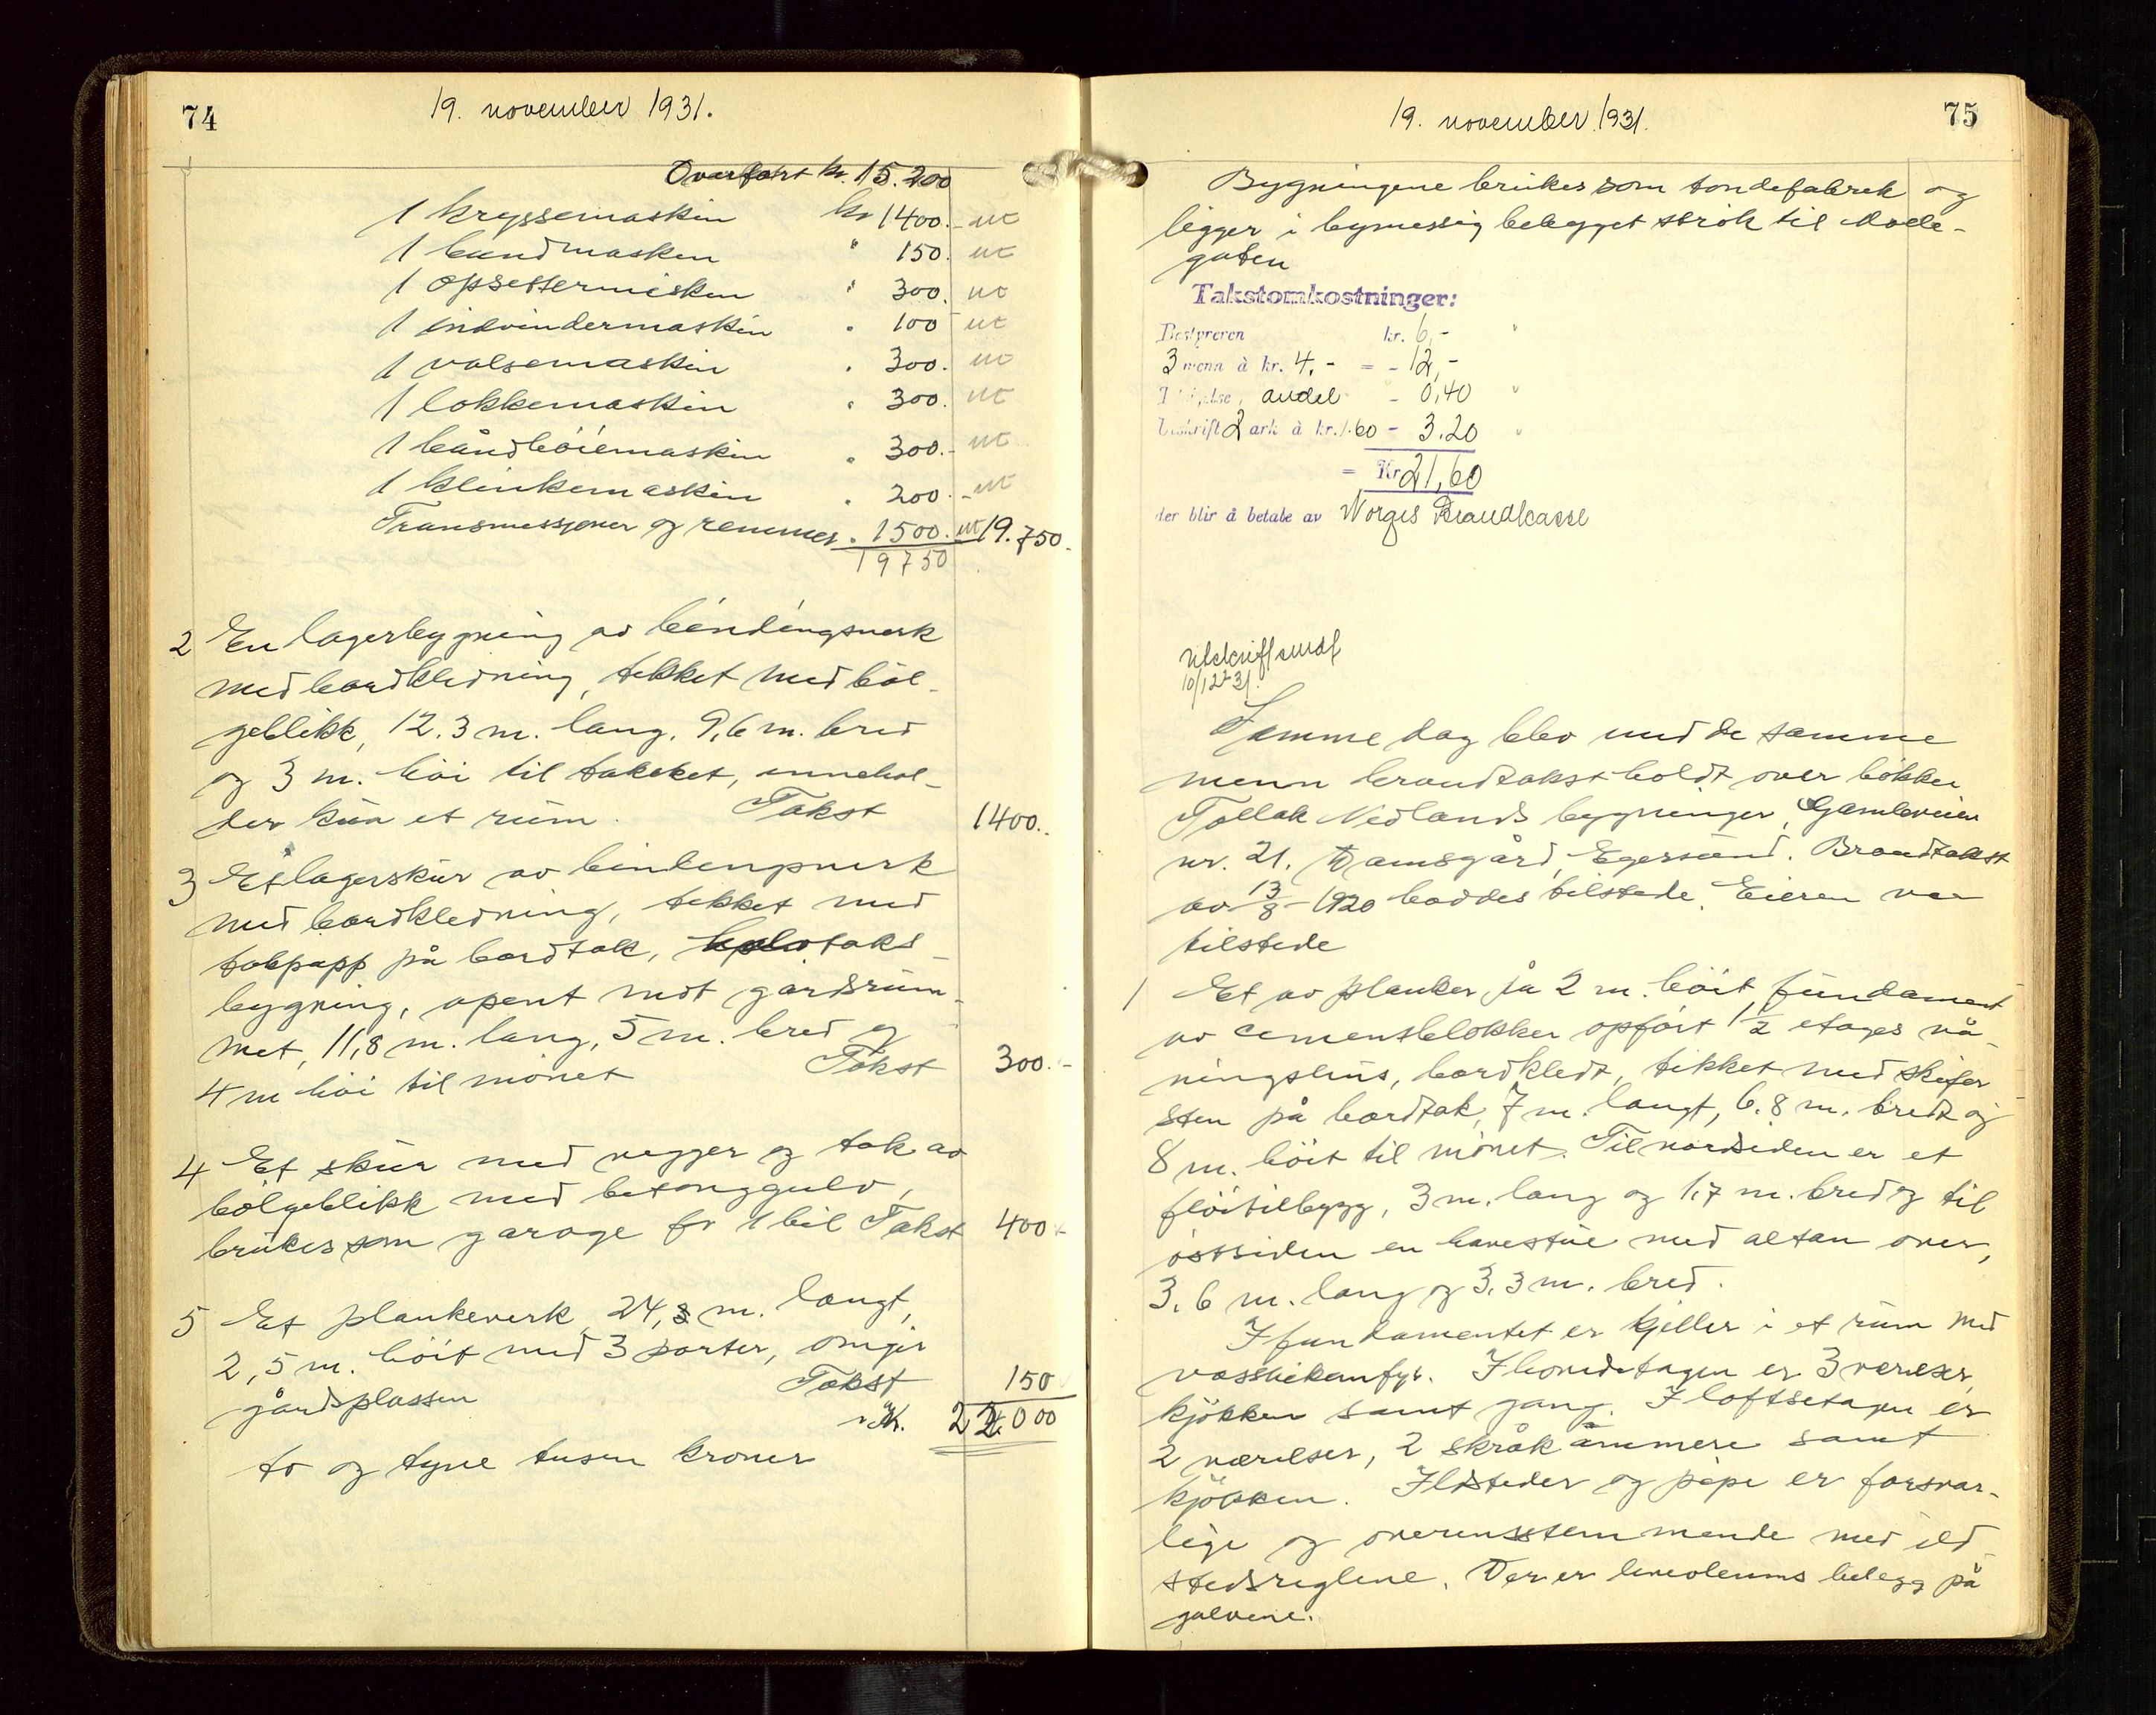 74
19. november 1931.
Overført kr. 15.200
1 kryssemaskin kr 1400.- ut
1 bundmaskin " 150. ut
1 opsettermaskin " 300. ut
1 indvindermaskin " 100 ut
1 valsemaskin " 300. ut
1 lokkemaskin " 300. ut
1 båndbøiemaskin " 300.- ut
1 klinkemaskin " 200.- ut
Transmissjoner og remmer " 1500. ut 19.750.
19750
2 En lagerbygning av bindingsverk
med bordkledning, tekket med bøl-
geblikk, 12.3 m. lang, 9,6 m. bred
og 3 m. høi til taket, innehol-
der kun et rum. Takst 1400..
3 Et lagerskur av bindingsverk
med bordkledning, tekket med
takpapp på bordtak, halvtaks
bygning, åpent mot gårdsrum-
met, 11,8 m. lang, 5 m. bred og
4 m høi til mønet Takst 300.-
4 Et skur med vegger og tak av
bølgeblikk med betonggulv,
brukes som garage for 1 bil Takst 400.-
5 Et plankeverk 24,8 m. langt,
2,5 m. høit med 3 porter, omgir
gårdsplassen Takst 150
Kr. 22.000
to og tyve tusen kroner
75
19. november 1931.
Bygningene brukes som tøndefabrik og
ligger i bymessig bebygget strøk til
gaten
Takstomkostninger:
Bestyreren kr. 6,-
3 menn à kr. 4.- = - 12,-
andel - 0,40
Utskrift 2 ark à kr. 1.60 - 3.20
= Kr 21,60
der blir å betale av Norges Brandkasse
Utskrift sendt
10/12 31.
Samme dag blev med de samme
menn brandtakst holdt over bøkker
Tollak Nedlands bygninger, Gamleveien
nr. 21, Damsgård, Egersund. Brandtakst
av 13/8 - 1920 haddes tilstede. Eieren var
tilstede
1 Et av planker på 2 m. høit fundament
av cementblokker opført 1 1/2 etages vå-
ningshus, bordkledt, tekket med skifer
sten på bordtak, 7 m. langt, 6.8 m. bredt og
8 m. høit til mønet. Til nordsiden er et
fløitilbygg, 3 m. lang og 1,7 m. bred og til
østsiden en havestue med altan over,
3.6 m. lang og 3.3 m. bred.
I fundamentet er kjeller i et rum med
vasskikamfyr. I hovedetagen er 3 værelser,
kjøkken samt gang. I loftsetagen er
2 værelser, 2 skråkammere samt
kjøkken. Ildsteder og pipe er forsvar-
lige og overensstemmende med ild-
stedsreglene. Der er linoleums belegg på
gulvene.